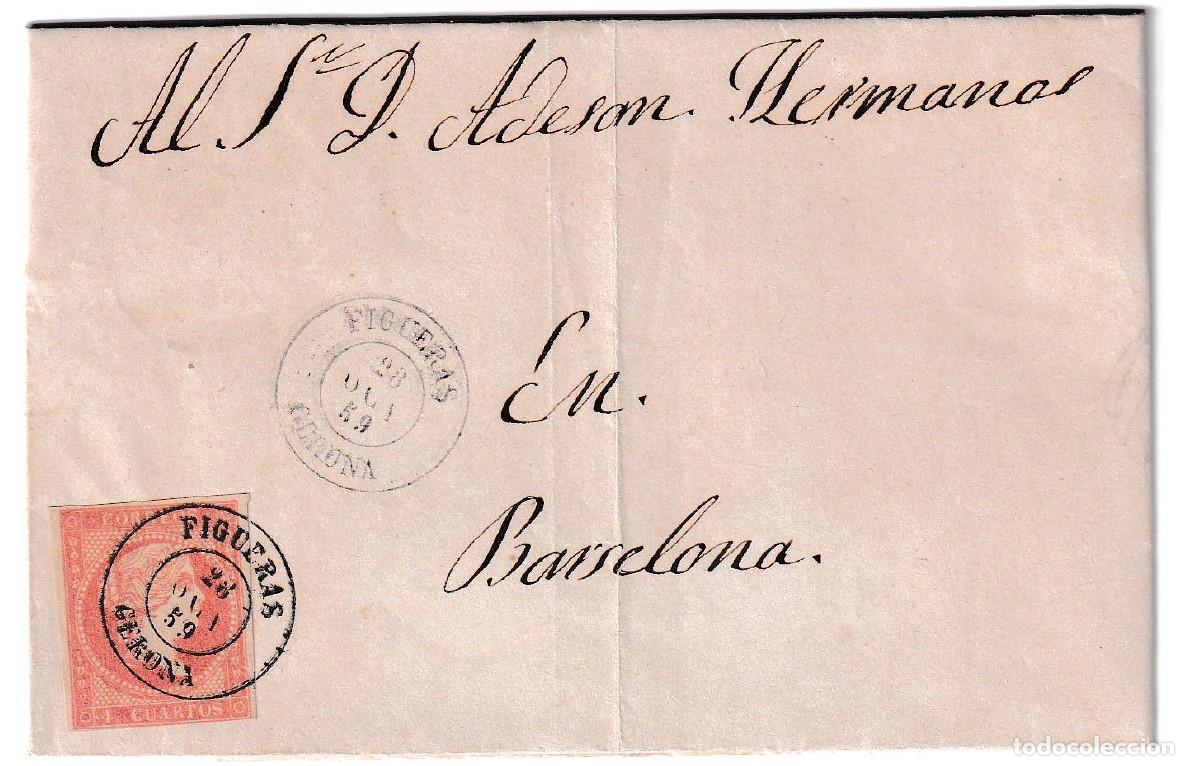 Al. Sr D. Adeson. Hermanos
En.
Barselona.
FIGUERAS
28
OCT
59
GERONA
CORREOS
FIGUERAS
28
OCT
59
GERONA
4 CUARTOS
todocoleccion